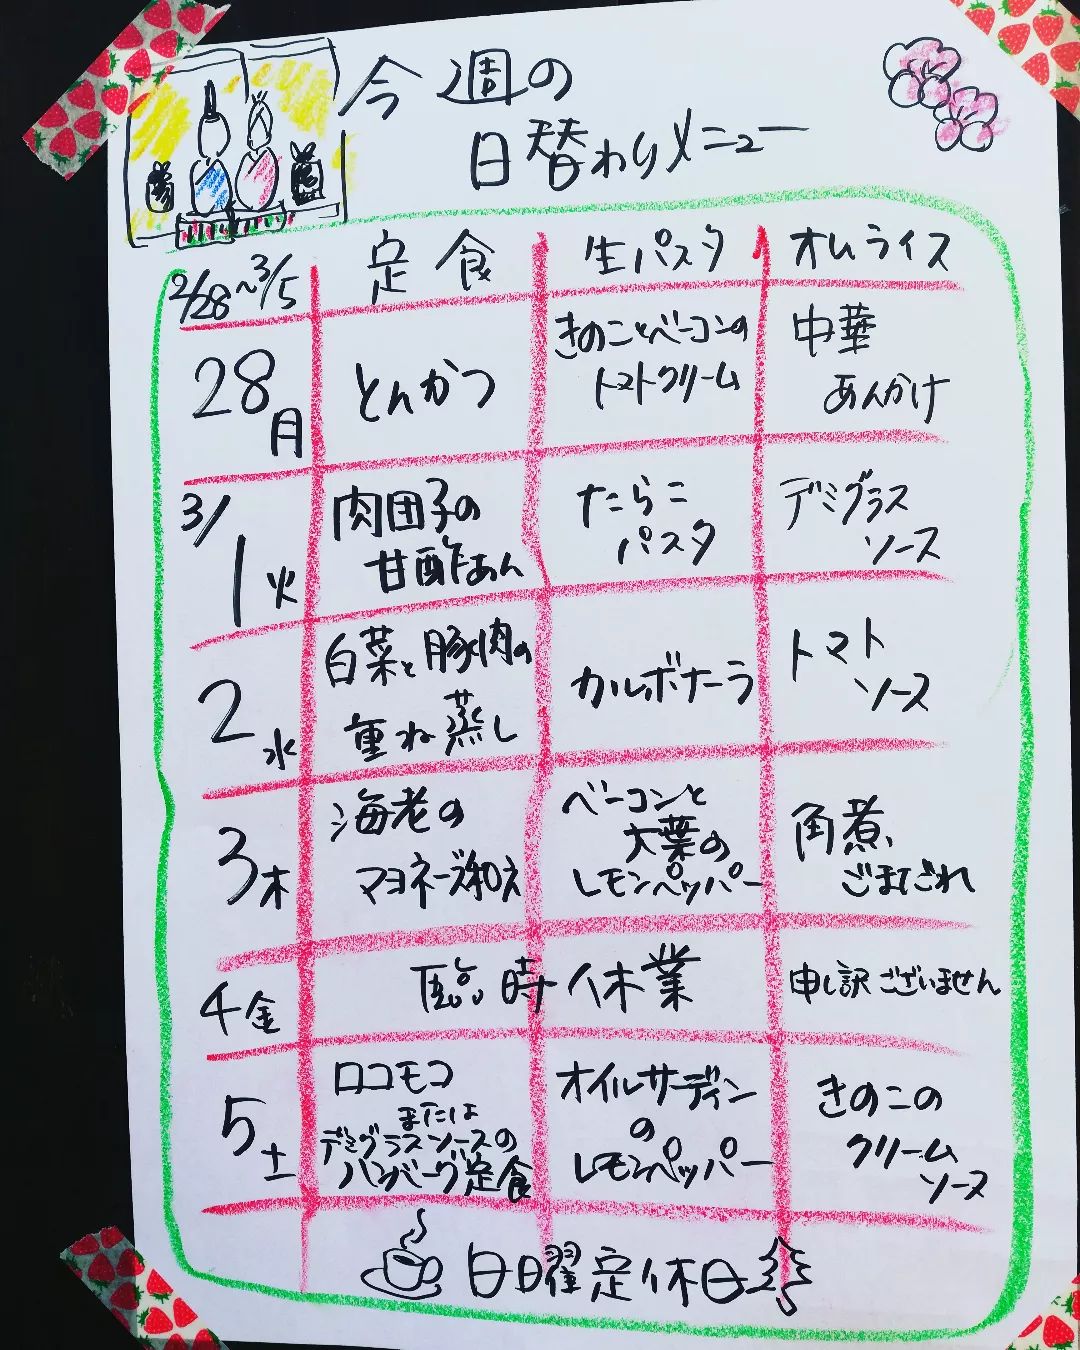 今週の
日替わりメニュー
2/28~3/5
定食
生パスタ
オムライス
28月
とんかつ
きのことベーコンの
トマトクリーム
中華
あんかけ
3/1火
肉団子の
甘酢あん
たらこ
パスタ
デミグラス
ソース
2水
白菜と豚肉の
重ね蒸し
カルボナーラ
トマト
ソース
3木
海老の
マヨネーズ和え
ベーコンと
大葉の
レモンペッパー
角煮、
ごまだれ
4金
臨時休業
申し訳ございません
5土
ロコモコ
または
デミグラスソースの
ハンバーグ定食
オイルサーディン
の
レモンペッパー
きのこの
クリーム
ソース
日曜定休日